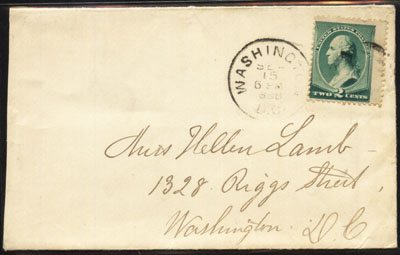 WASHINGTON
SEP
15
6 PM
888
D.C.
UNITED STATES POSTAGE
TWO 2 CENTS
Miss Hellen Lamb
1328. Riggs Street,
Washington. D. C